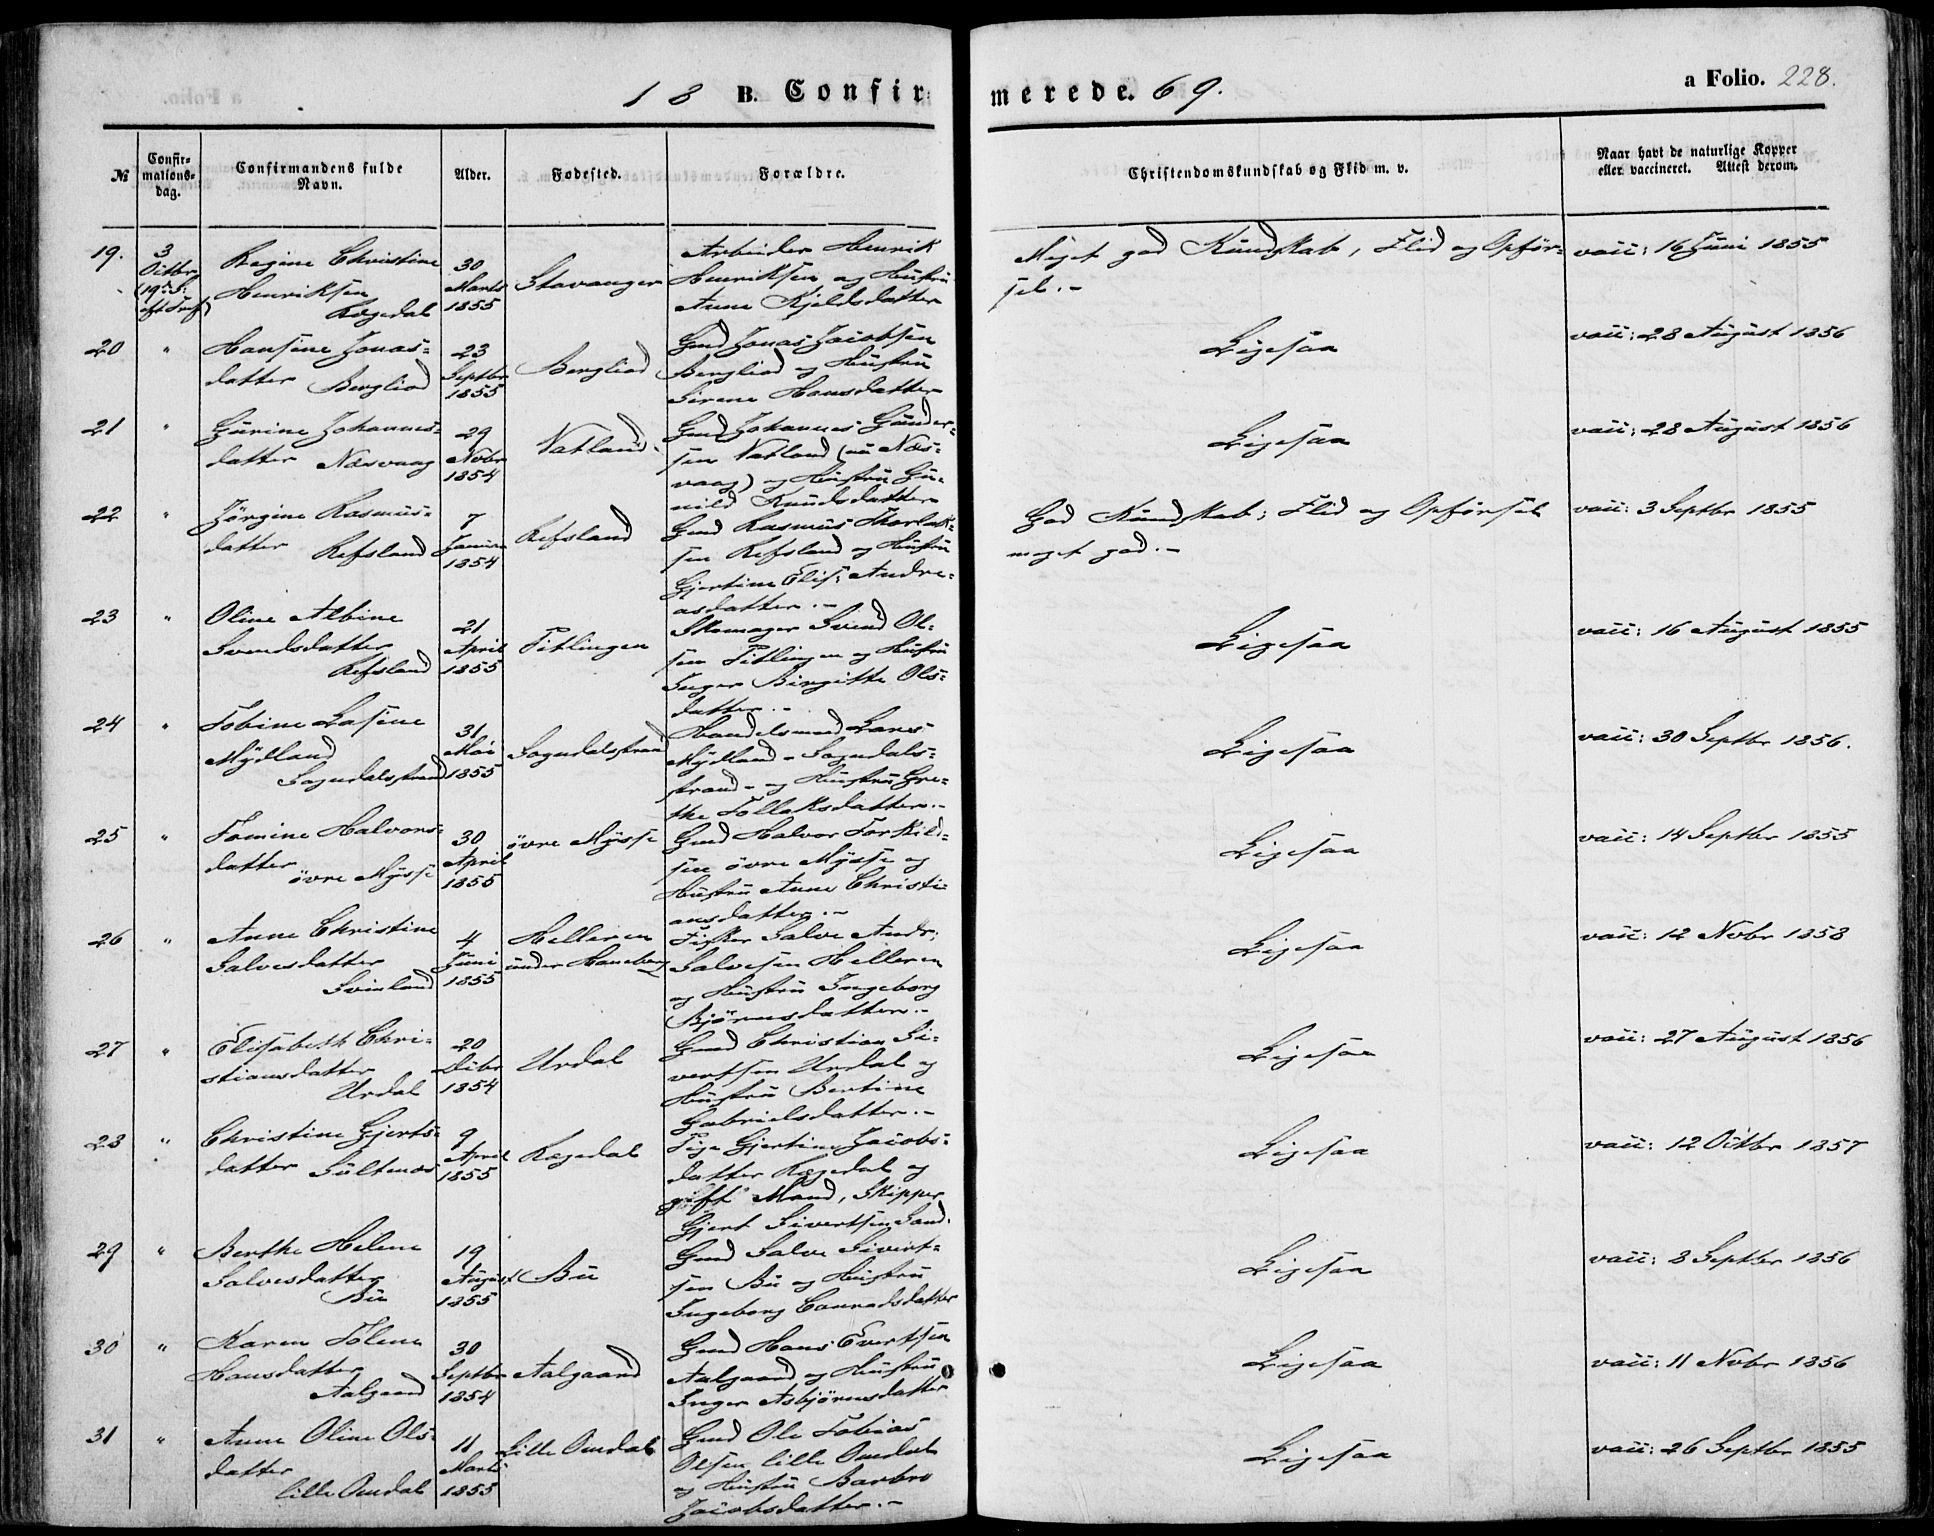 18 B. Confirmerede. 69.
a Folio. 228.
№
Confirmations-dag.
Confirmandens fulde Navn.
Alder.
Fødested.
Forældre.
Christendomskundskab og Flid m. v.
Naar havt de naturlige Kopper eller vaccineret. Attest derom.
19.
3
Octbr
(19 S:
eft Tref)
Regine Christine
Henriksen
Regedal
30
Marts
1855
Stavanger
Arbeider Henrik
Henriksen og Hustru
Anne Kjeldsdatter
Meget god Kundskab, Flid og Opfør-
sel.-
vacc: 16 Juni 1855
20
"
Hansine Jonas-
datter Bergliod
23
Septbr
1855
Bergliod
Gmd Jonas Jacobsen
Bergliod og Hustru
Sirene Hansdatter
Ligesaa
vacc: 28 August 1856
21
"
Gurine Johannes-
datter Næsvaag
29
Nobr
1854
Vatland
Gmd Johannes Gunder-
sen Vatland (nu Næs-
vaag) og Hustru Gu-
nild Knudsdatter
Ligesaa
vacc: 28 August 1856
22
"
Jørgine Rasmus-
datter Refsland
7
Januar
1854
Refsland
Gmd Rasmus Thorlak-
sen Refsland og Hustru
Gjertine Elis: Andre-
asdatter.-
God Kundskab; Flid og Opførsel
meget god.-
vacc: 3 Septbr 1855
23
"
Oline Albine
Svendsdatter
Refsland
21
April
1855
Titlingen
Skomager Svend Ol-
sen Titlingen og Hustru
Inger Birgitte Ols-
datter.-
Ligesaa
vacc: 16 August 1855
24
"
Tobine Lasine
Mydland
Sogndalstrand
31
Mai
1855
Sogndalstrand
Handelsmand Lars
Mydland - Sogndals-
strand - og Hustru Gre-
the Tollaksdatter.-
Ligesaa
vacc: 30 Septbr 1856.
25
"
Tomine Halvors-
datter
øvre Mysse
30
April
1855
øvre Mysse
Gmd Halvor Torkild-
sen øvre Mysse og
Hustru Anne Christi-
ansdatter.-
Ligesaa
vacc: 14 Septbr 1855
26
"
Anne Christine
Salvesdatter
Svinland
4
Juni
1855
Helleren
under Haneberg
Fisker Salve Andr:
Salvesen Helleren
og Hustru Ingeborg
Bjørnsdatter.-
Ligesaa
vacc: 12 Nobr 1858
27
"
Elisabeth Chri-
stiansdatter
Urdal
20
Decbr
1854
Urdal
Gmd Christian Si-
vertsen Urdal og
Hustru Bertine
Gabrielsdatter.-
Ligesaa
vacc: 27 August 1856
28
"
Christine Gjerts-
datter Sultenæs
9
April
1855
Regedal
Pige Gjertine Jacobs-
datter Regedal og
gift Mand, Skipper
Gjert Sivertsen Sand.
Ligesaa
vacc: 12 Octbr 1857
29
"
Berthe Helene
Salvesdatter
Bu
19
August
1855
Bu
Gmd Salve Sivert-
sen Bu og Hustru
Ingeborg Conradsdatter
Ligesaa
vacc: 8 Septber 1856
30
"
Karen Tolene
Hansdatter
Aalgaard
30
Septbr
1854
Aalgaard
Gmd Hans Evertsen
Aalgaard og Hustru
Inger Asbjørnsdatter
Ligesaa
vacc: 11 Nobr 1856
31
"
Anne Oline Ols-
datter
lille Omdal
11
Marts
1855
Lille Omdal
Gmd Ole Tobias
Olsen lille Omdal
og Hustru Barbro
Jacobsdatter.-
Ligesaa
vacc: 26 Septbr 1855